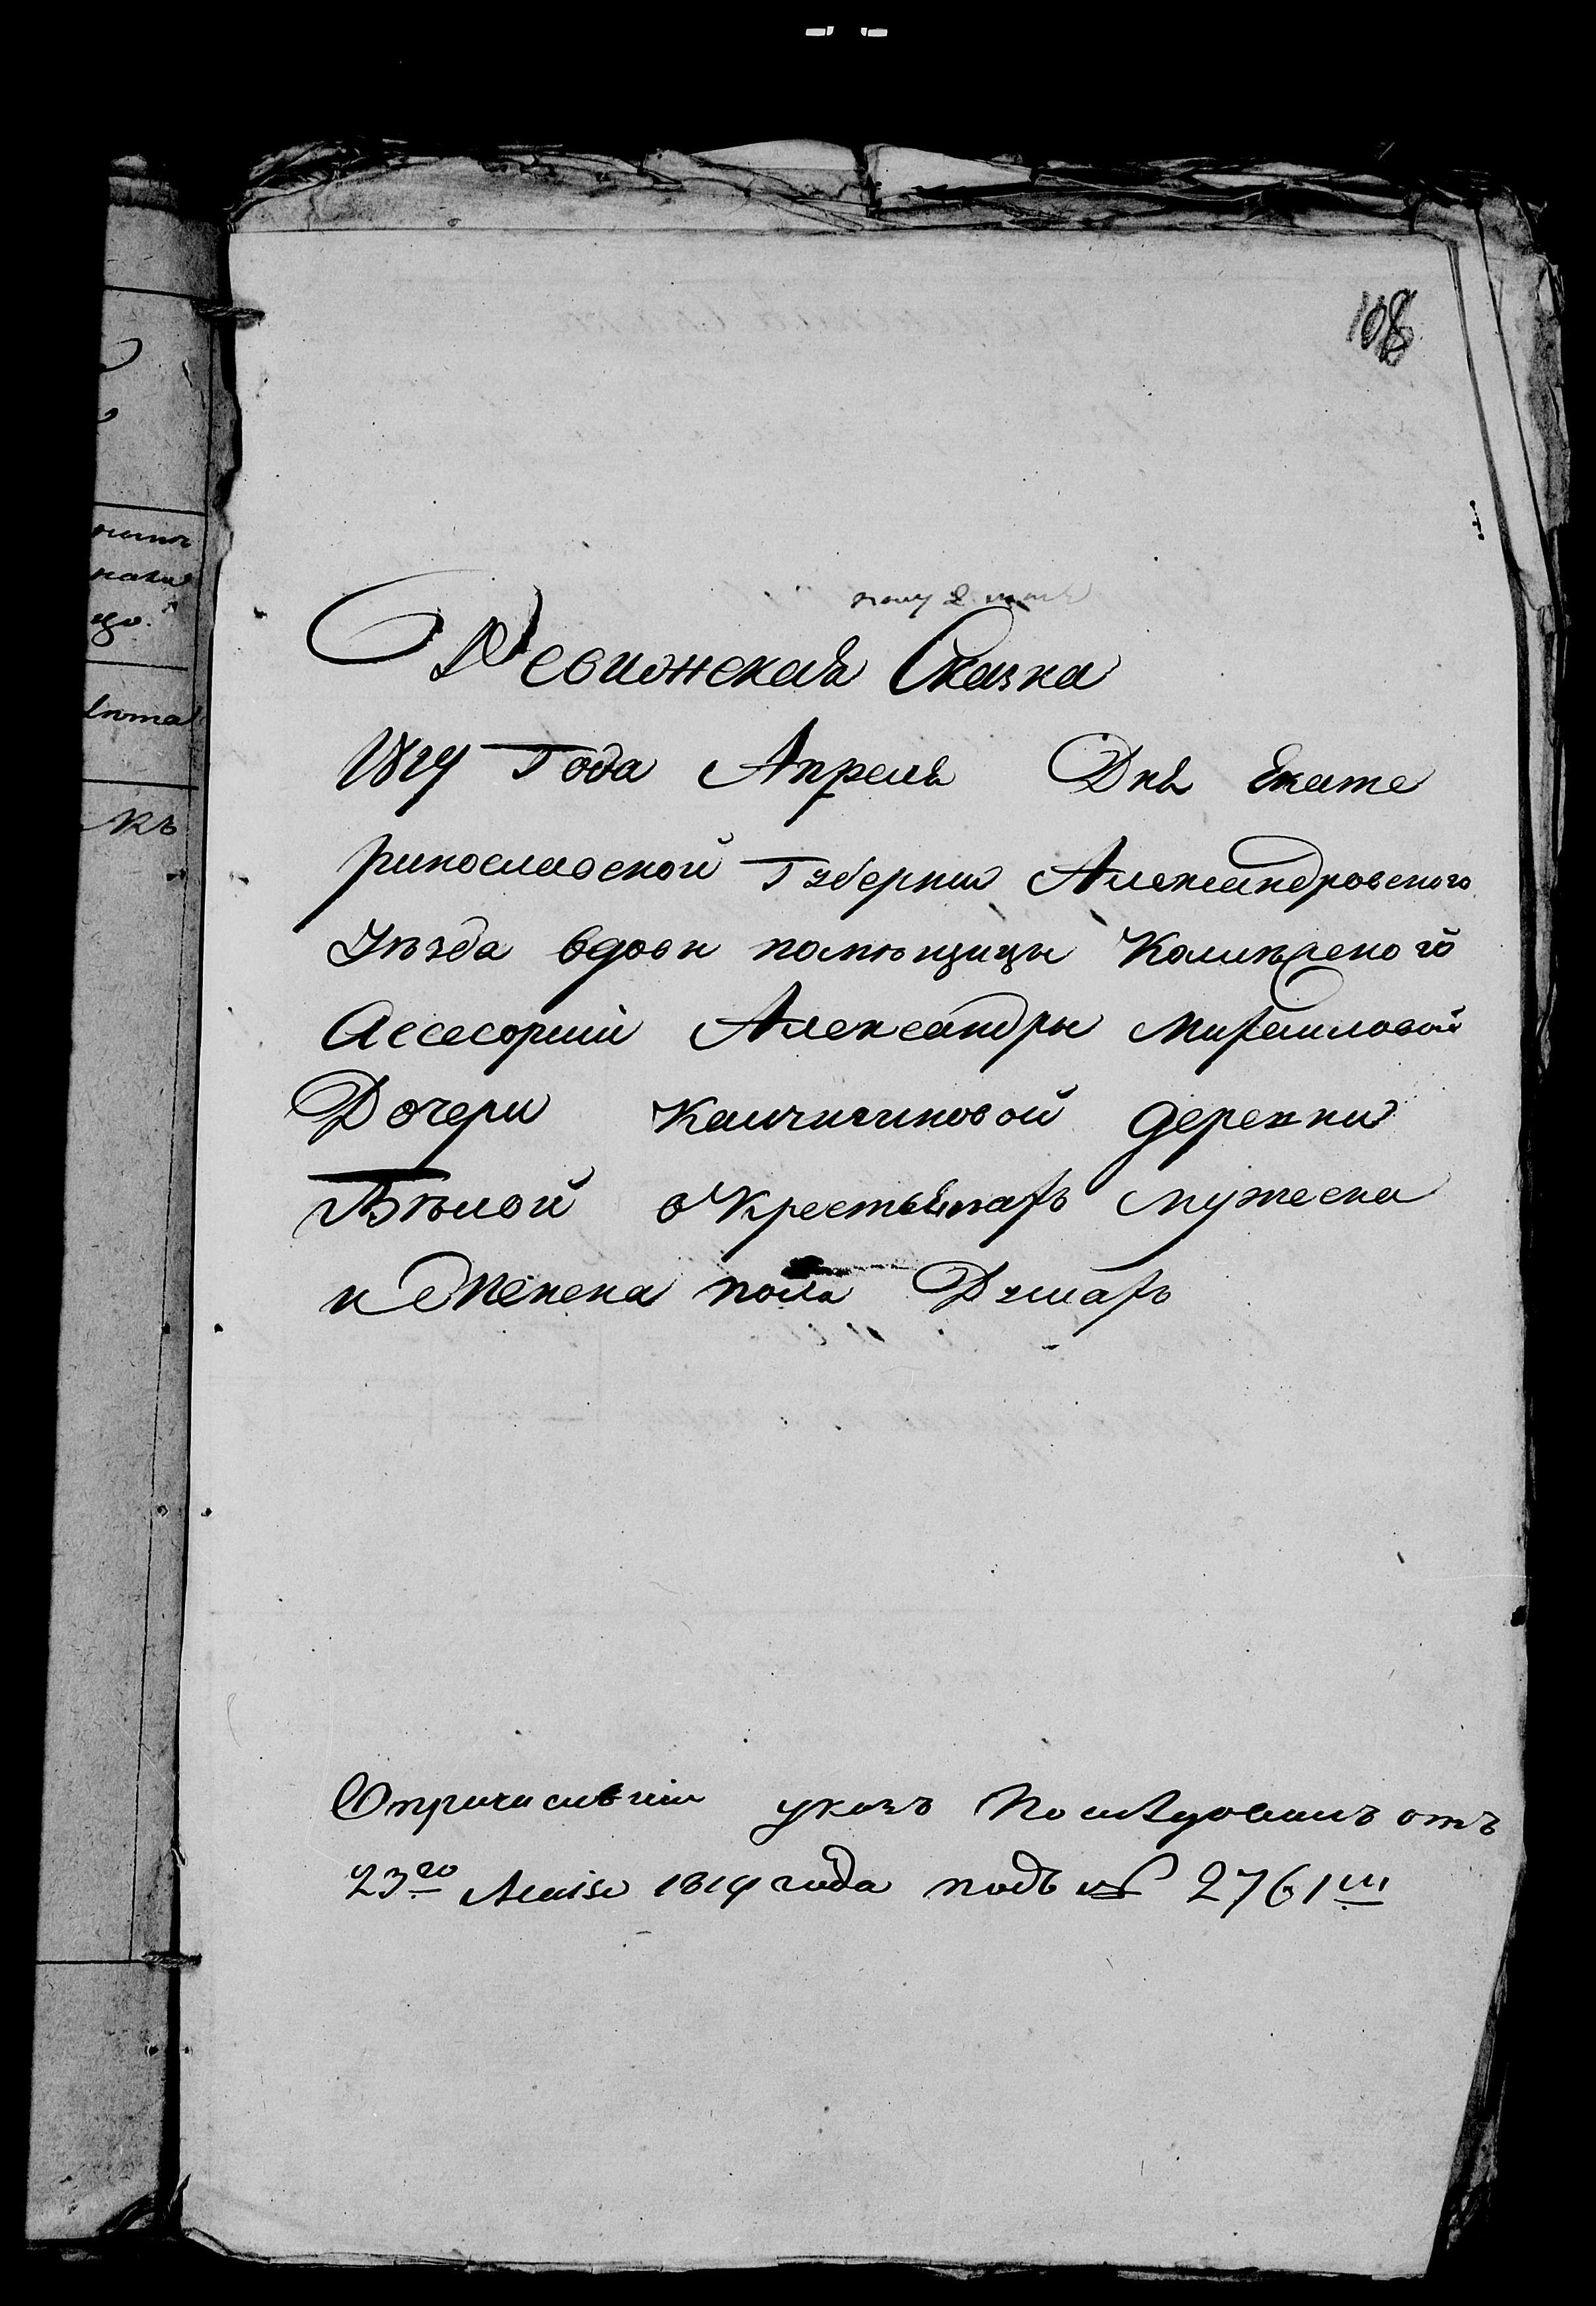 108
Ревижская Сказка
1819 Года Апреля Дня Екате
ринославской Губернии Александровского
Уѣзда вдовы помѣщицы Колѣжского
Ассесорши Александры Михайловой
Дочери деревни
Бѣлой о Крестьянахъ мужеска
и Женска пола Душахъ
указъ Послѣдовалъ отъ
23го Маiя 1819 года подъ № 2761мъ